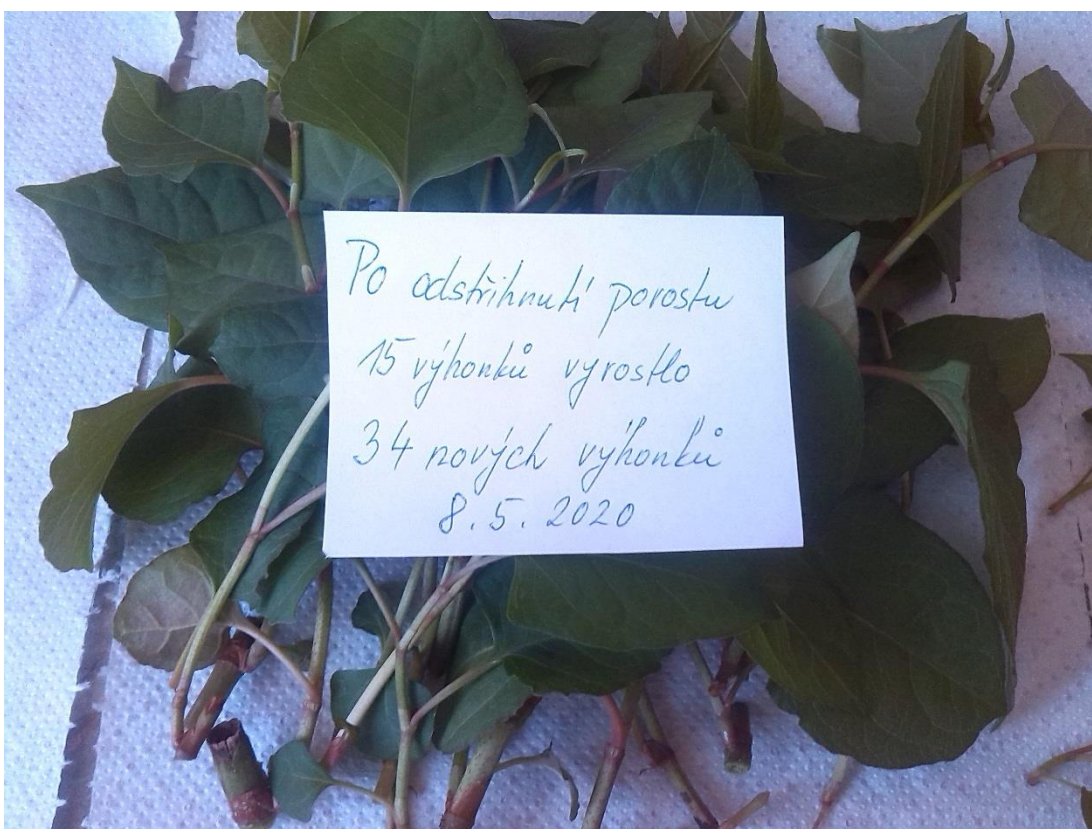 Po odstřihnutí porostu
15 výhonků vyrostlo
34 nových výhonků
8.5.2020